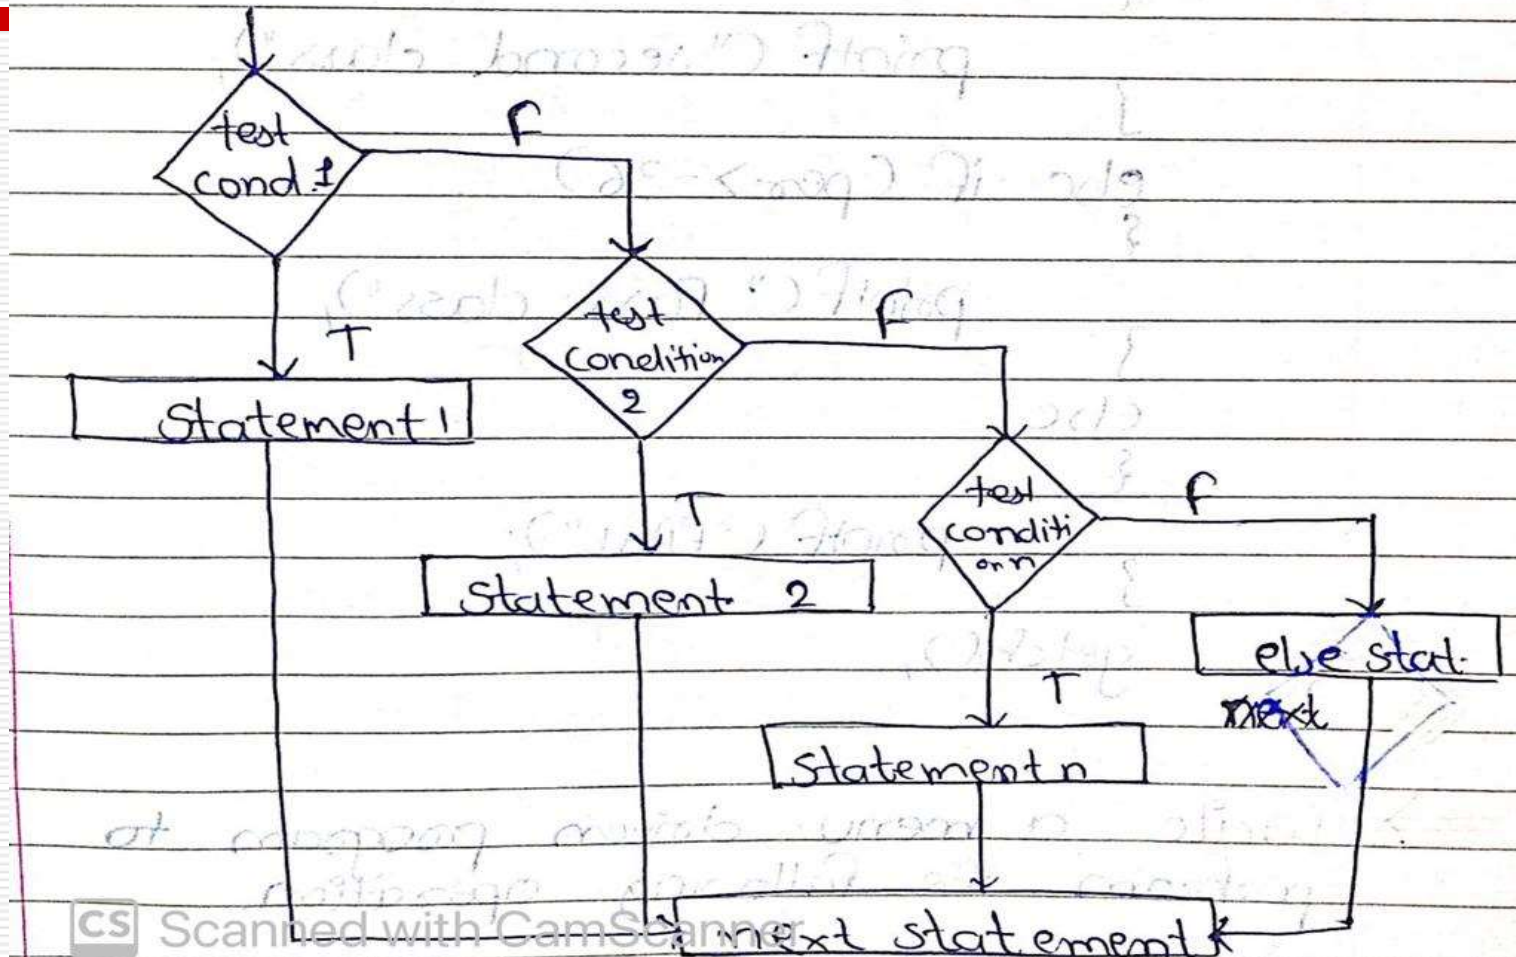 F
test
cond. 1
T
Statement 1
F
test
condition
2
T
Statement 2
F
test
conditi
on n
T
Statement n
else stat.
next
next statement
CS Scanned with CamScanner